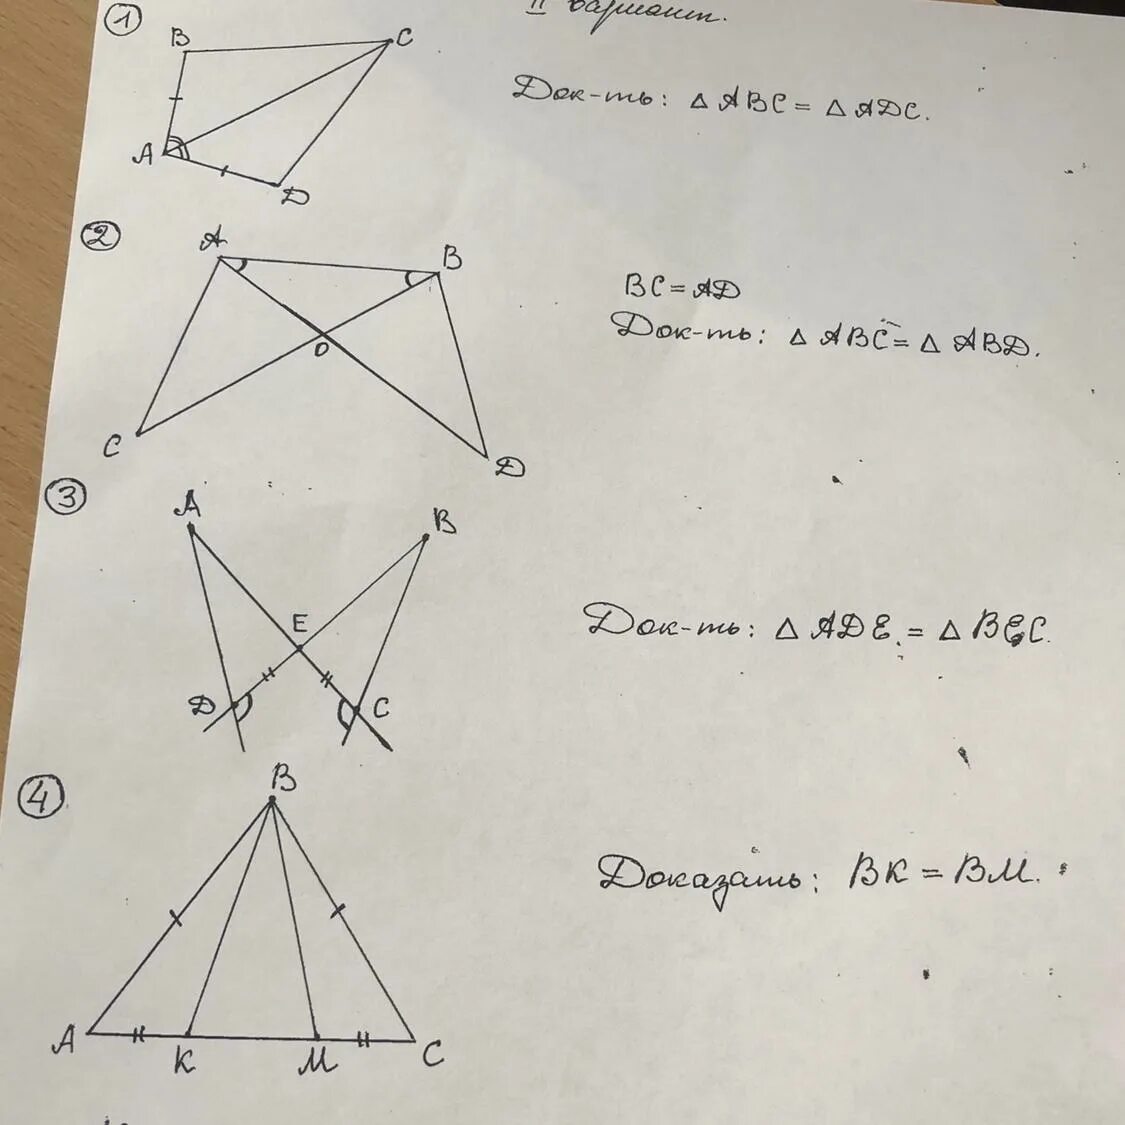 II вариант.
1
B
C
A
D
Док-ть: △ ABC = △ ADC.
2
A
B
O
C
D
BC = AD
Док-ть: △ ABC = △ ABD.
3
A
B
E
D
C
Док-ть: △ ADE = △ BEC.
4
B
A
K
M
C
Доказать: BK = BM.